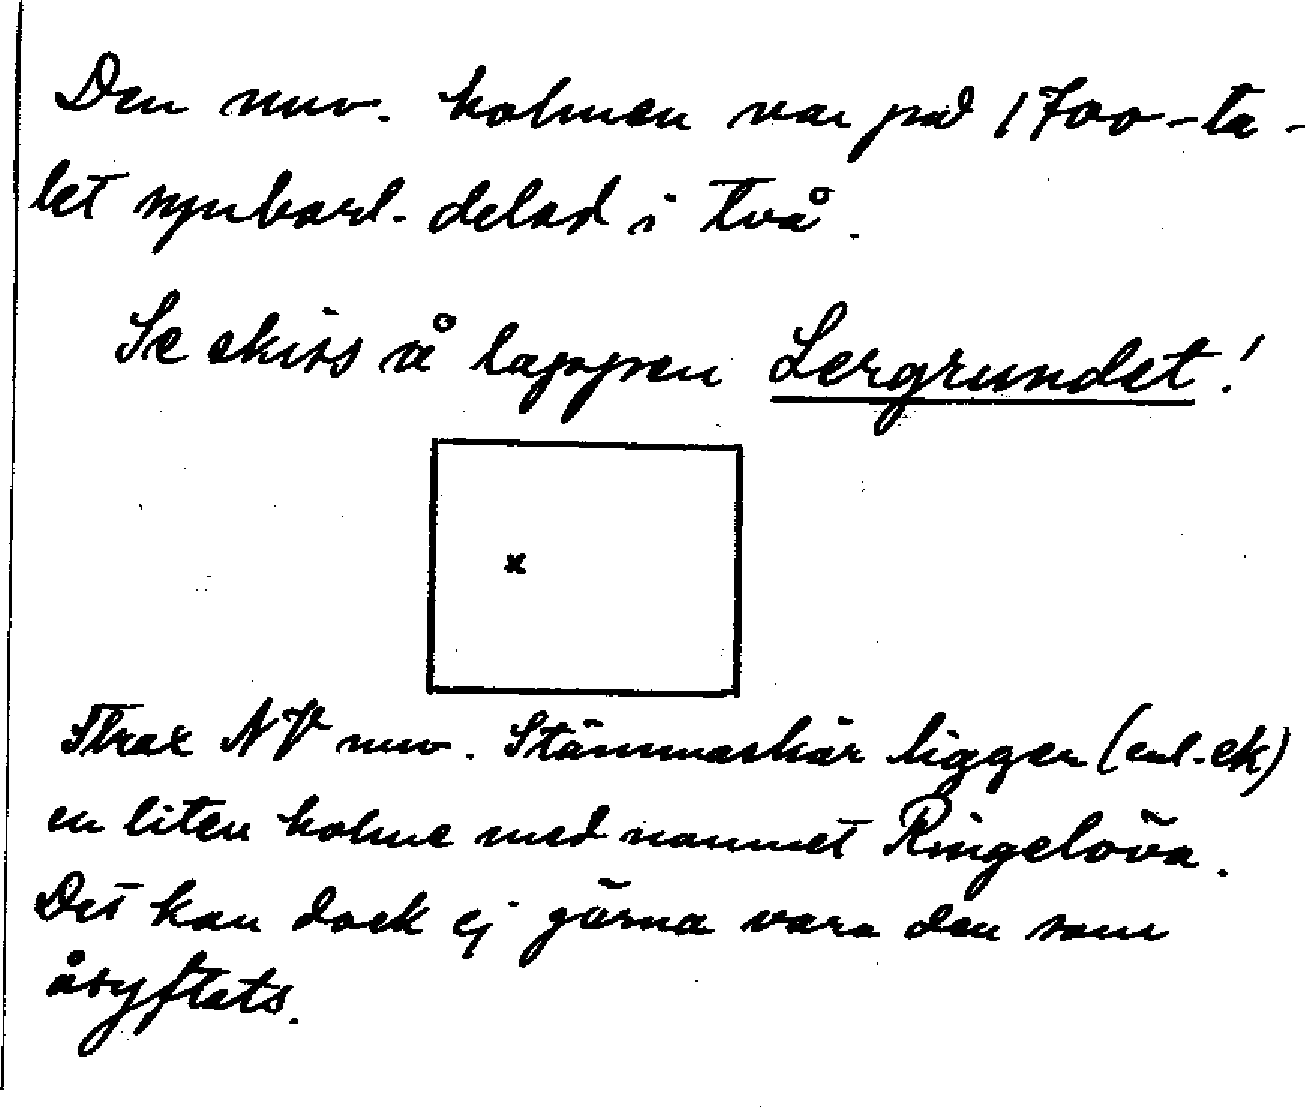 Den nuv. holmen var på 1700-ta-
let synbarl. delad i två.
Se skiss å lappen Lergrundet!
x
Strax NV nuv. Stämmaskär ligger (enl. ek)
en liten holme med namnet Ringelöva.
Det kan dock ej gärna vara den som
åsyftats.